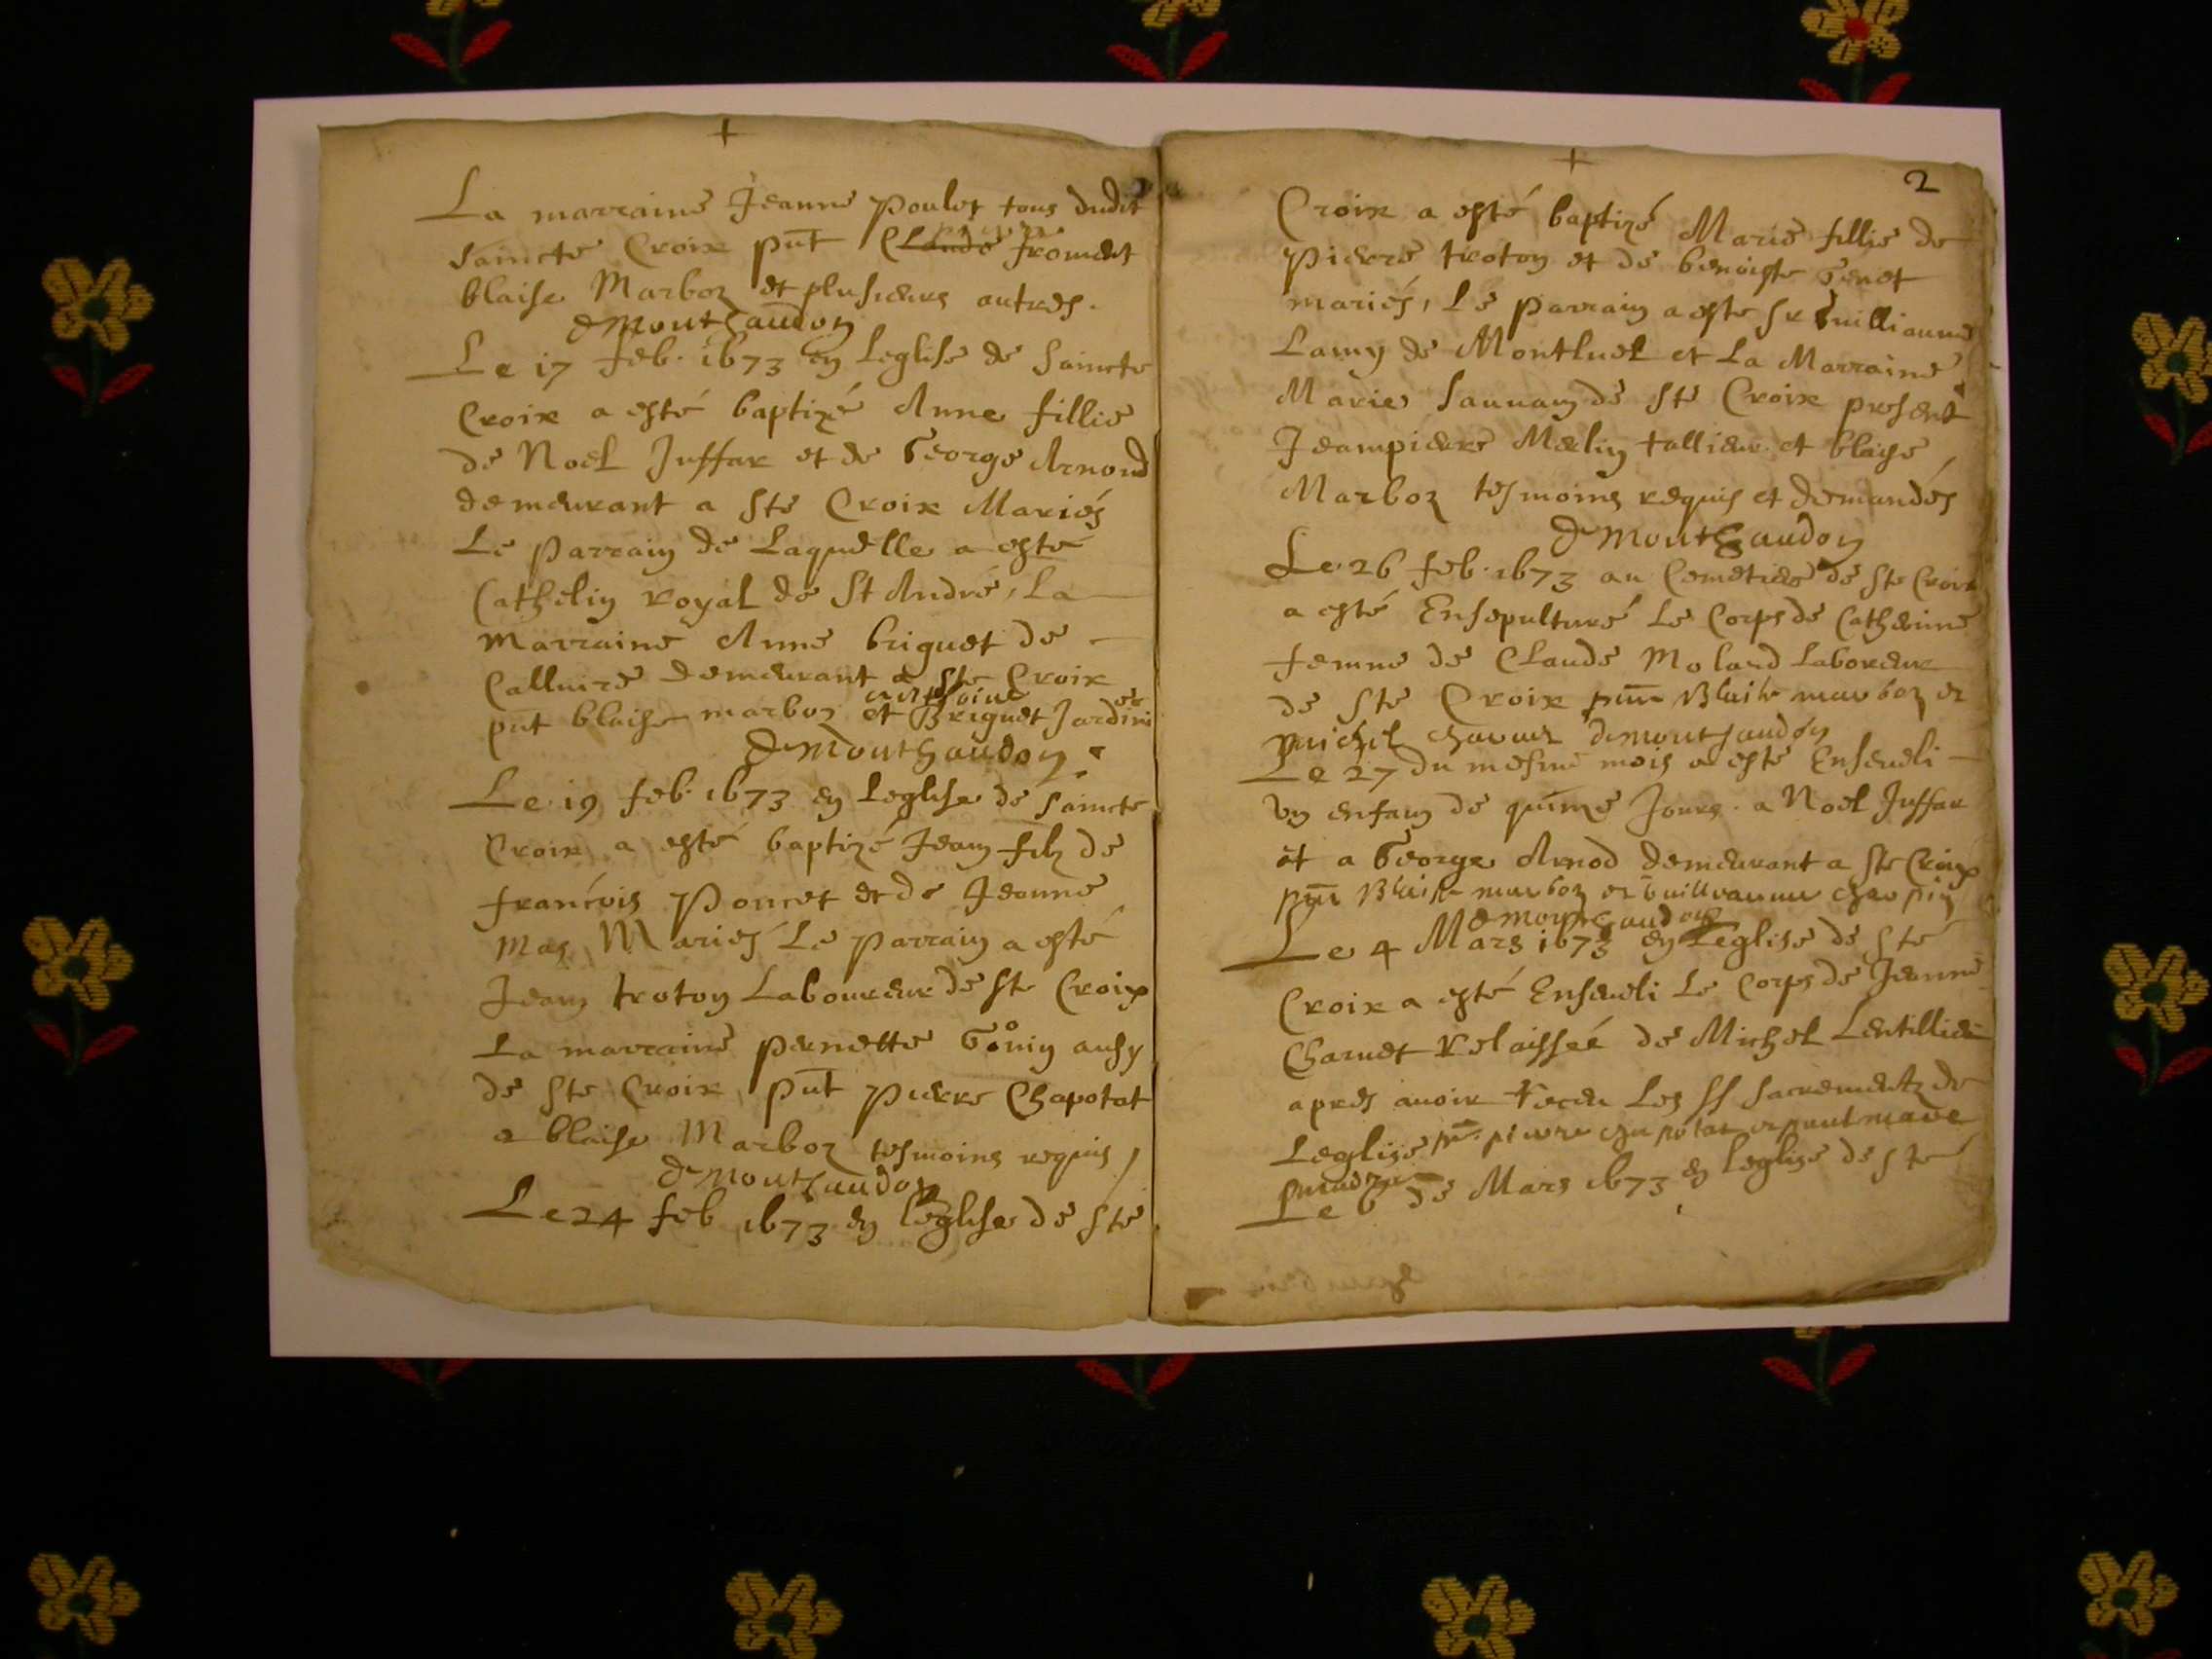 La marraine Jeanne Poulet tous dudit
saincte Croix put Claude froment
blaise Marboz et plusieurs autres.
DeMontchaudon
Le 17 feb. 1673 en Leglise de Saincte
Croix a esté baptizé Anne fillie
de Noel Juffar et de George Arnoud
demeurant a Ste Croix Mariés
Le Parrain de Laquelle a esté
Cathelin royal de St André, La
Marraine Anne briguet de
Calluire demeurant a Ste Croix
anthoine
put blaise marboz et Briguet Jardini
er
DeMontchaudon.
Le 19 feb. 1673 en Leglise de Saincte
Croix a esté baptizé Jean filz de
françois Poncet et de Jeanne
Mas Mariés Le Parrain a esté
Jean troton Laboureur de Ste Croix
La marraine Pernette Gonin ausy
de Ste Croix put Pierre Chapotat
e blaise Marboz tesmoins requis,
DeMontchaudon
Le 24 feb 1673 en Leglise de Ste
2
Croix a esté baptizé Marie fillie de
Pierre troton et de benoiste Genet
mariés, Le parrain a este Sr Guilliaume
Lamy de Montluel et La Marraine
Marie Saunay de Ste Croix present
Jeampierre Merlin tallieur et blaise
Marboz tesmoins requis et demandés
DeMontchaudon
Le 26 feb. 1673 au Cemetiere de Ste Croix
a esté Ensepulturé Le Corps de Catherine
femme de Claude Molard Laboreur
de Ste Croix pnt Blaise marboz et
michel charuet demontchaudon
Le 27 du mesme mois a esté Enseveli
un enfan de quinze Jours a Noel Juffar
et a George Arnod demeurant a Ste Croix
pnt Blaise marboz et Guilliaume charpin
DeMontchaudon
Le 4 Mars 1673 en Leglise de Ste
Croix a esté Enseveli Le Corps de Jeanne
Charuet Relaissée de Michel Lentillier
apres avoir receu Les SS sacrementz de
Leglise pnt pierre chapotat et
Le 6 de Mars 1673 en leglise de Ste